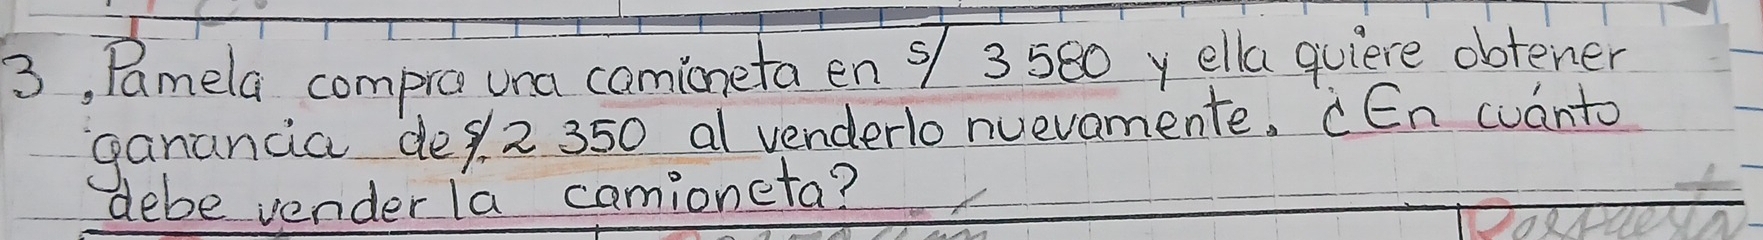 3, Pamela compra una camioneta en s/ 3 580 y ella quiere obtener
ganancia de s/. 2 350 al venderlo nuevamente. ¿En cuánto
debe vender la camioneta?
Respuesta